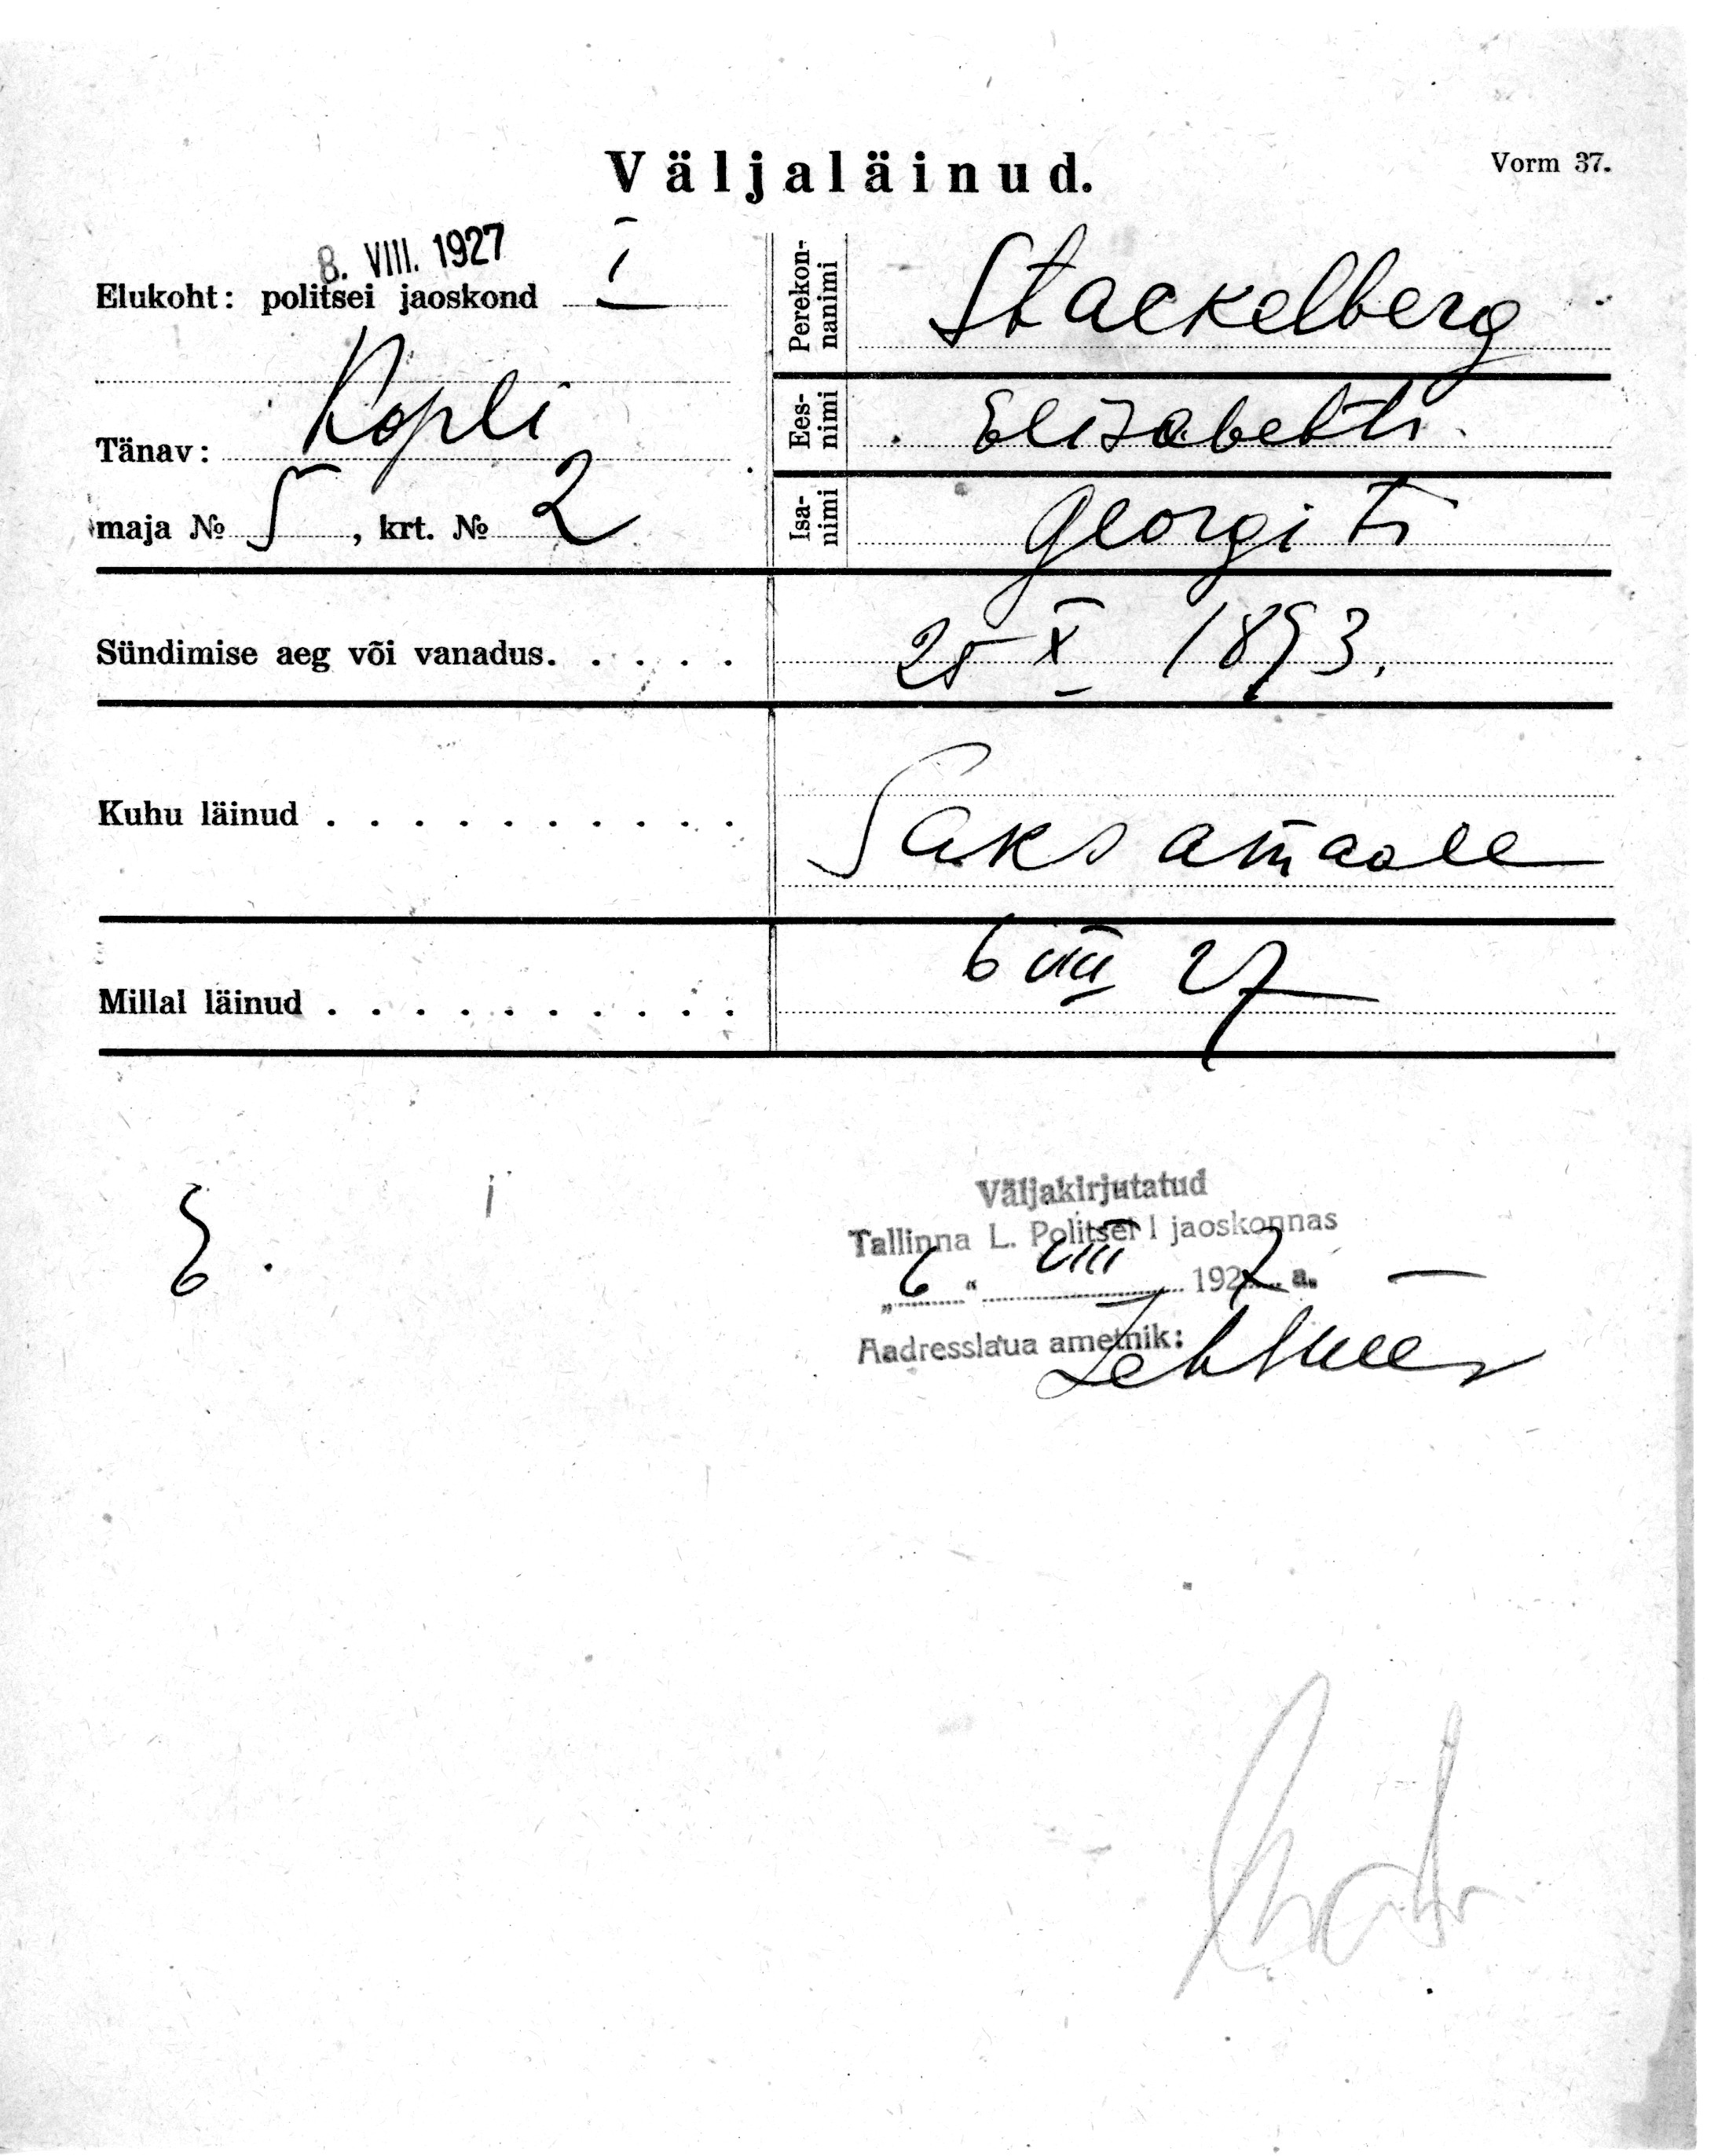 Väljaläinud.
Vorm 37.
8. VIII. 1927
Elukoht: politsei jaoskond I
Tänav: Kopli
maja № 5, krt. № 2
Perekon-
nanimi
Stackelberg
Ees-
nimi
Elisabeth
Isa-
nimi
Georgi tr
Sündimise aeg või vanadus. . . . .
25 X 1893.
Kuhu läinud . . . . . . . . . .
Saksamaale
Millal läinud . . . . . . . . . .
6 VIII 27
E.
Väljakirjutatud
Tallinna L. Politsei I jaoskonnas
„6“ VIII 1927 a.
Aadresslaua ametnik: